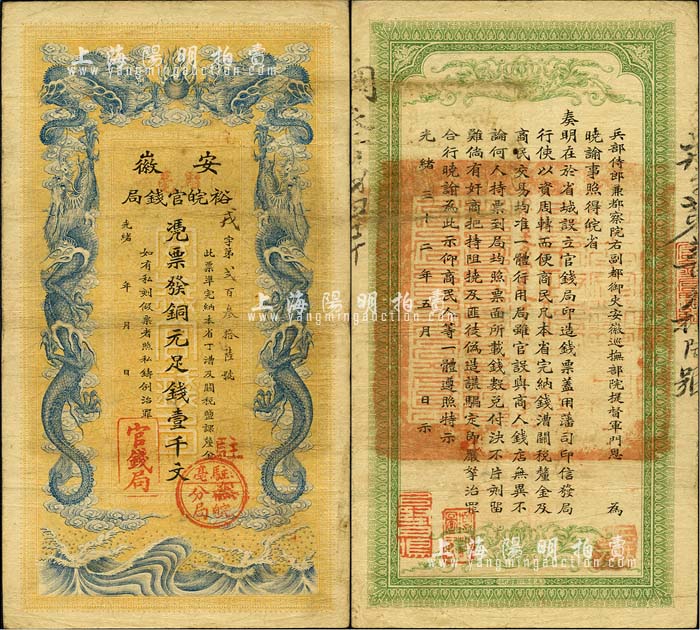 上海陽明拍賣
www.yangmingauction.com
安徽
裕皖官錢局
戎字第貳百叁拾陸號
憑票發銅元足錢壹千文
此票準完納本省丁漕及關稅鹽課釐金
如有私刻假票者照私鑄例治罪
光緒 年 月 日
官錢局
駐
皖
分局
兵部侍郎兼都察院右副都御史安徽巡撫部院提督軍門恩 為
曉諭事照得皖省
奏明在於省城設立官錢局印造錢票蓋用藩司印信發局
行使以資周轉而便商民凡本省完納錢漕關稅釐金及
商民交易均准一體行用局雖官設與商人錢店無異不
論何人持票到局均照票面所載錢數兌付決不片刻留
難倘有奸商把持阻撓及匪徒偽造誆騙定即嚴拏治罪
合行曉諭為此示仰商民人等一體遵照特示
光緒三十二年五月 日示
上海陽明拍賣
www.yangmingauction.com
上海陽明拍賣
www.yangmingauction.com